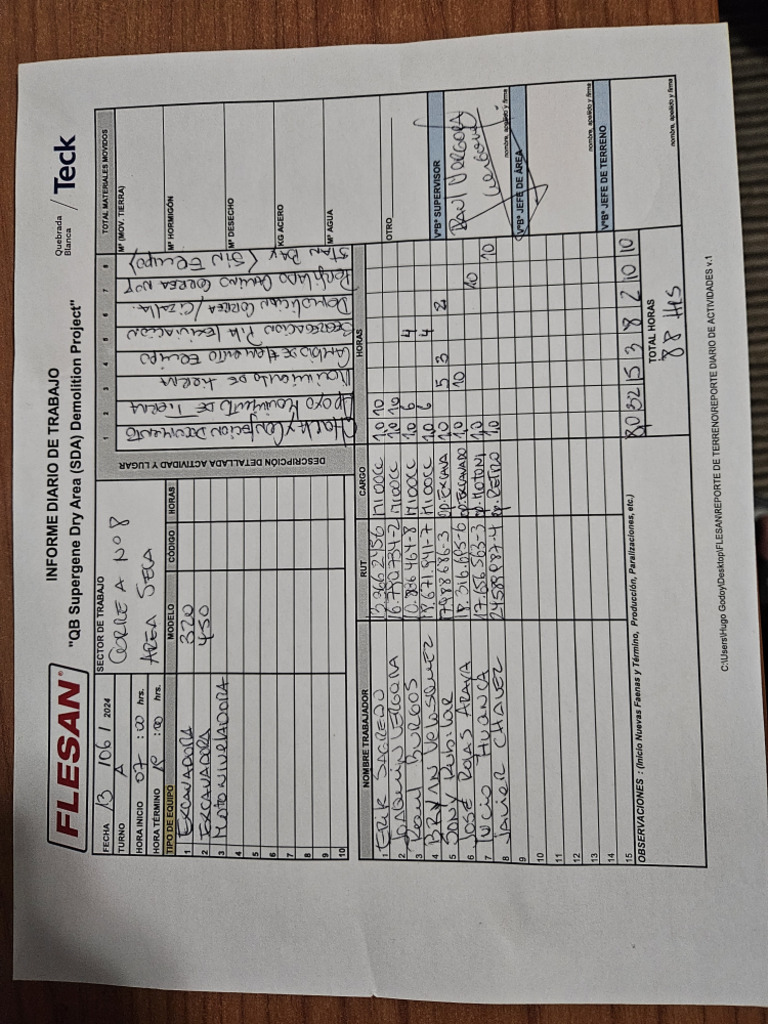 FLESAN
INFORME DIARIO DE TRABAJO
"QB Supergene Dry Area (SDA) Demolition Project"
Quebrada Blanca / Teck
FECHA 13 / 06 / 2024
TURNO A
HORA INICIO 07 : 00 hrs.
HORA TÉRMINO 19 : 00 hrs.
SECTOR DE TRABAJO
CORREA Nº 8
AREA SECA
TIPO DE EQUIPO MODELO CÓDIGO HORAS
1 EXCAVADORA 320
2 EXCAVADORA 450
3 MOTONIVELADORA
4
5
6
7
8
9
10
DESCRIPCIÓN DETALLADA ACTIVIDAD Y LUGAR
1 Charla y Confeccion Documento
2 Apoyo Movimiento de Tierra
3 Movimiento de tierra
4 Cambio de Elemento Equipo
5 Segregacion Pila / Excavacion
6 Demolicion Correa / Cizalla
7 Perfilado Camino Correa Nº 8
8 Stan Bay (Sin Equipo)
TOTAL MATERIALES MOVIDOS
M³ (MOV. TIERRA)
M³ HORMIGÓN
M³ DESECHO
KG ACERO
M³ AGUA
OTRO
NOMBRE TRABAJADOR RUT CARGO HORAS
1 Erik Sagredo 1,0 10
2 Joaquin Vergara 16.790734-2 1,0 10
3 Raul Burgos 10.836464-8 1,0 6 4
4 Bryan Velasquez 18.671.941-7 1,0 6 4
5 Sony Rubilar op. Excava 1,0 5 3 2
6 José Rojas Araya 18.316.695-6 op. Excavado 1,0 10
7 Lucio Huanca 17.656.563-3 op. Motoni 1,0 10
8 Javier Chavez 24589987-4 op. Retro 1,0 10
9
10
11
12
13
14
15 8,0 32 15 3 8 2 10 10
TOTAL HORAS
88 Hrs
VºBº SUPERVISOR
Raul Vergara
nombre, apellido y firma
VºBº JEFE DE ÁREA
nombre, apellido y firma
VºBº JEFE DE TERRENO
nombre, apellido y firma
OBSERVACIONES : (Inicio Nuevas Faenas y Término, Producción, Paralizaciones, etc.)
C:\Users\Hugo Godoy\Desktop\FLESAN\REPORTE DE TERRENO\REPORTE DIARIO DE ACTIVIDADES v.1